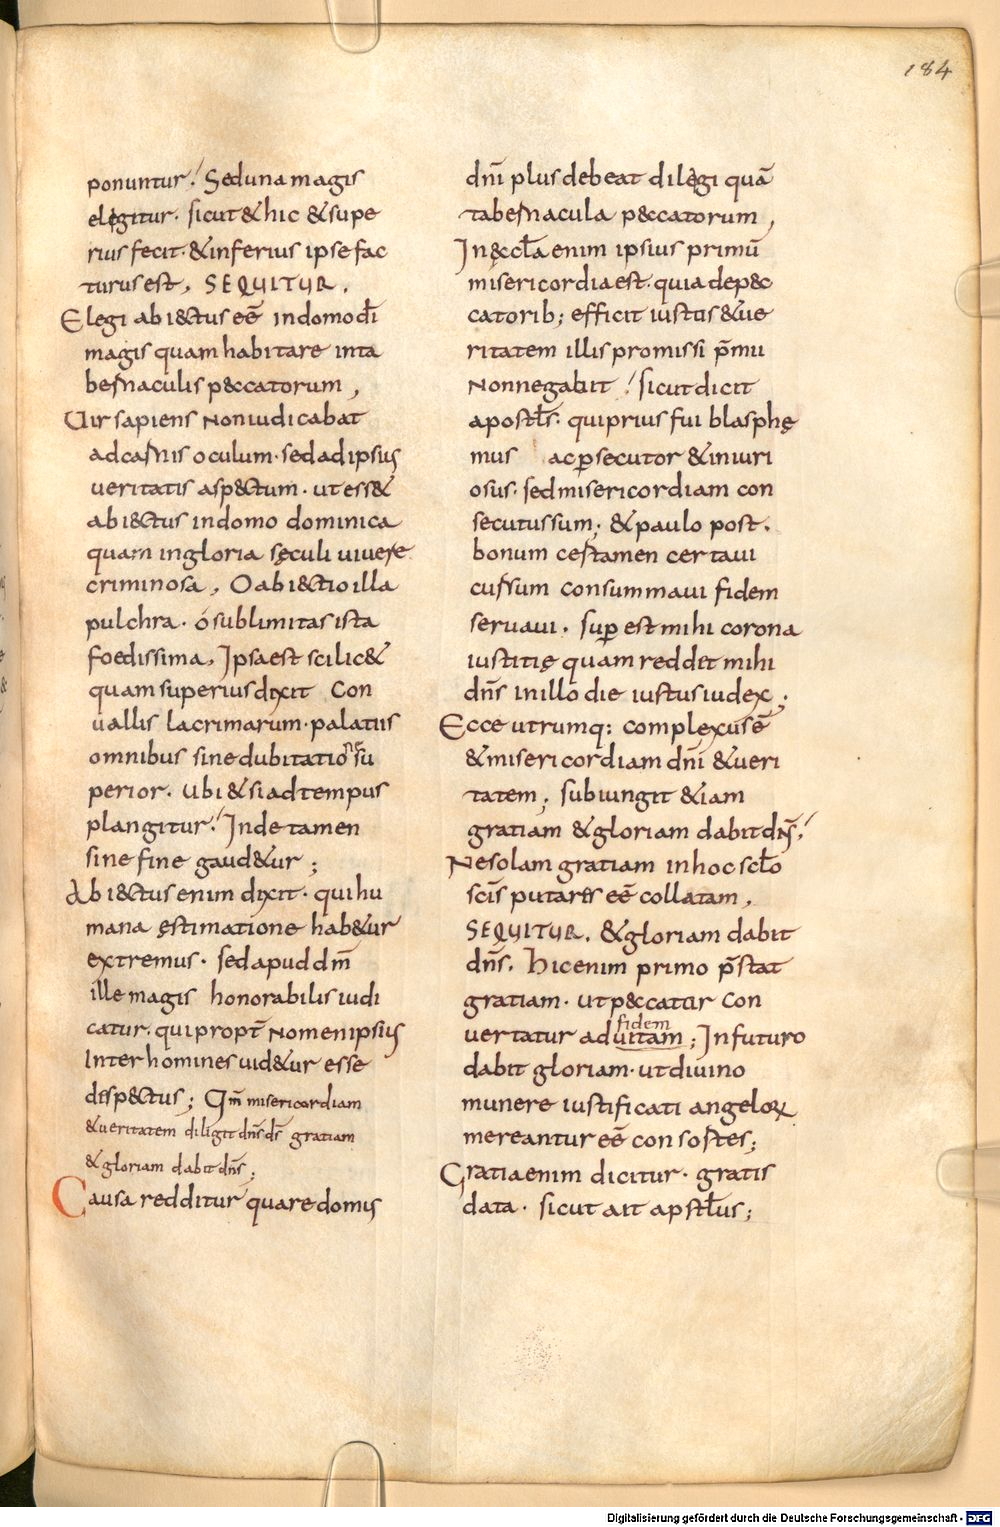 184
ponuntur! Sed una magis
elegitur. sicut & hic & supe
rius fecit. & inferius ipse fac
turus est, SEQUITUR.
Elegi abi&ctus eē in domo dī
magis quam habitare in ta
bernaculis p&ccatorum,
Uir sapiens non iudicabat
ad carnis oculum. sed ad ipsius
ueritatis asp&ctum. ut ess&
abi&ctus in domo dominica
quam in gloria sęculi uiuere
criminosa, O abi&ctio illa
pulchra. ó sublimitas ista
foedissima, Ipsa est scilic&
quam superius dixit Con
uallis lacrimarum. palatiis
omnibus sine dubitatione su
perior. Ubi & si ad tempus
plangitur! Inde tamen
sine fine gaud&ur;
Abi&ctus enim dixit. qui hu
mana ęstimatione hab&ur
extremus. sed apud dn̄m
ille magis honorabilis iudi
catur. qui propt̄ nomen ipsius
inter homines uid&ur esse
disp&ctus; Qm̄ misericordiam
& ueritatem diligit dn̄s ds̄ gratiam
& gloriam dabit dn̄s;
Causa redditur quare domus
dn̄i plus debeat diligi quā
tabernacula p&ccatorum,
In ęccl̄a enim ipsius primū
misericordia est. quia de p&c
catorib; efficit iustos & ue
ritatem illis promissi p̄mii
Non negabit! sicut dicit
apostl̄s. qui prius fui blasphę
mus ac p̱secutor & iniuri
osus. sed misericordiam con
secutus sum; & paulo post.
bonum certamen certaui
cursum consummaui fidem
seruaui. sup̱ est mihi corona
iustitię quam reddet mihi
dn̄s in illo die iustus iudex;
Ecce utrumq: complexus ē
& misericordiam dn̄i & ueri
tatem; subiungit & iam
gratiam & gloriam dabit dn̄s,!
Ne solam gratiam in hoc scl̄o
sc̄is putares eē collatam,
SEQUITUR. & gloriam dabit
dn̄s. Hic enim primo p̄stat
gratiam. ut p&ccator con
fidem
uertatur ad uitam; In futuro
dabit gloriam. ut diuino
munere iustificati angeloꝝ
mereantur eē consortes;
Gratia enim dicitur. gratis
data. sicut ait apstl̄us;
Digitalisierung gefördert durch die Deutsche Forschungsgemeinschaft - DFG